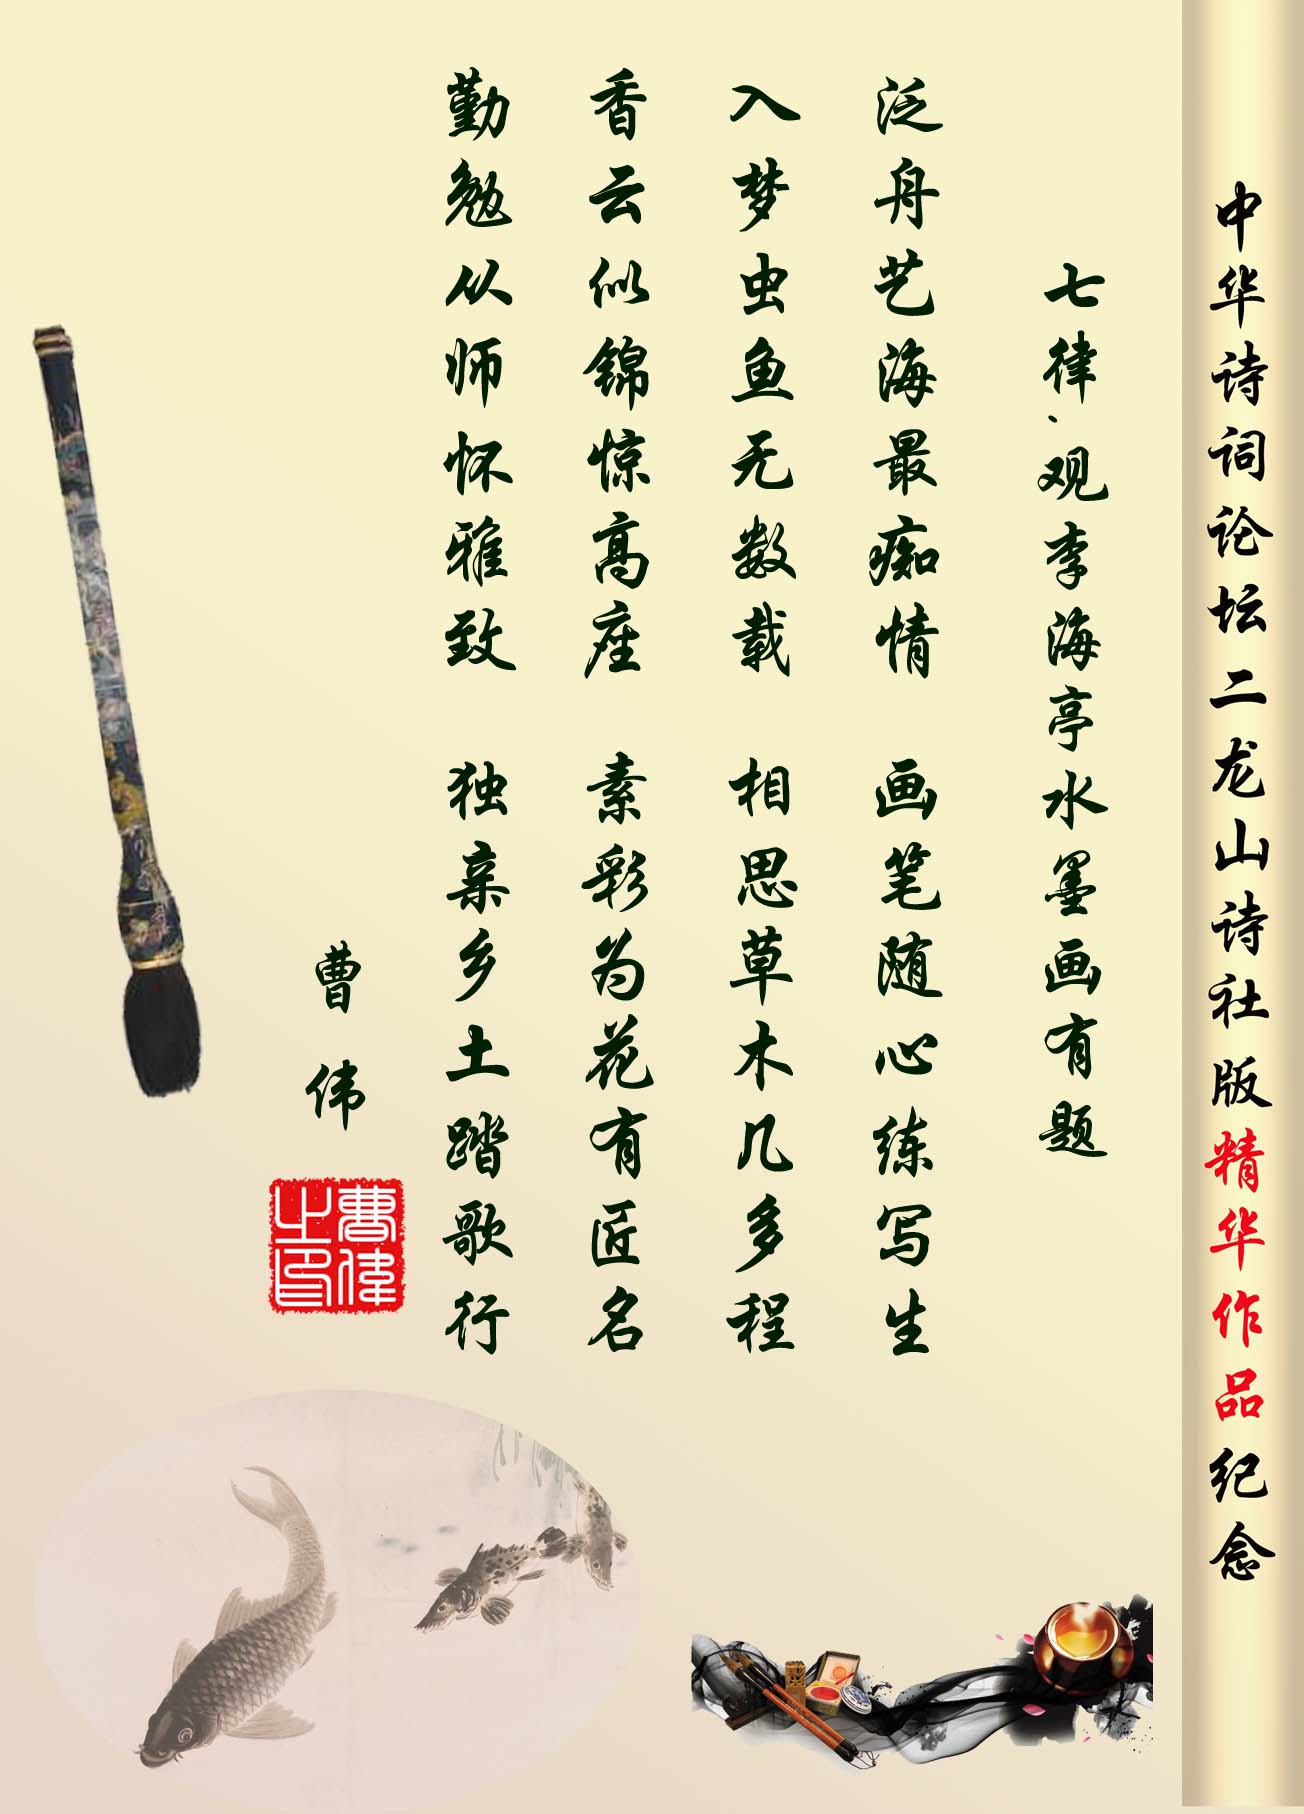 中华诗词论坛二龙山诗社版精华作品纪念
七律、观李海亭水墨画有题
泛舟艺海最痴情 画笔随心练写生
入梦虫鱼无数载 相思草木几多程
香云似锦惊高座 素彩为花有匠名
勤勉从师怀雅致 独亲乡土踏歌行
曹伟
曹伟
之印